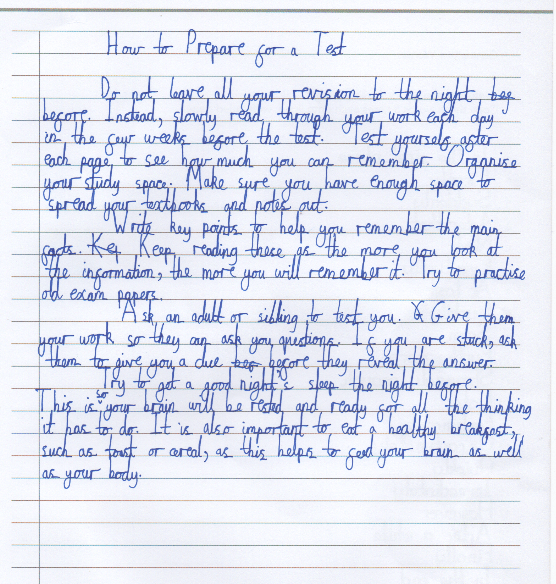 How to Prepare for a Test
Do not leave all your revision to the night bef
before. Instead, slowly read, through your work each day
in the few weeks before the test. Test yourself after
each page to see how much you can remember. Organise
your study space. Make sure you have enough space to
spread your textbooks and notes out.
Write key points to help you remember the main
facts. Kep Keep reading these as the more you look at
the information, the more you will remember it. Try to practise
old exam papers.
Ask an adult or sibling to test you. & Give them
your work so they can ask you questions. If you are stuck, ask
them to give you a clue bef before they reveal the answer.
Try to get a good night's sleep the night before.
This is so your brain will be rested and ready for all the thinking
it has to do. It is also important to eat a healthy breakfast,
such as toast or cereal, as this helps to feed your brain as well
as your body.